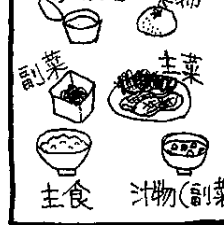 物
副菜
主菜
主食
汁物(副菜